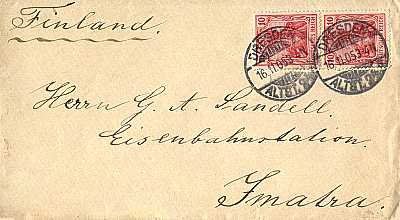 Finland.
10 10
DRESDEN DRESDEN
16.11.05.3-4N. 16.11.05.3-4N.
ALTST. ALTST.
Herrn G. A. Sandell.
Eisenbahnstation.
Imatra.